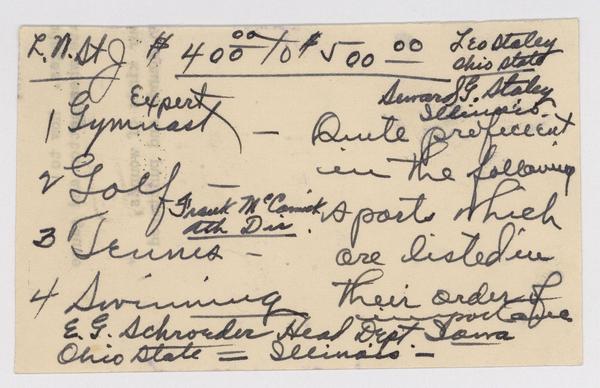 L. N. St J $ 400 00 to $ 500 00 Leo Staley
Ohio State
Seward G. Staley
Illinois.
Expert
1 Gymnast — Quite proficient
in the following
2 Golf — sports which
Frank McComick
Ath Dir.
3 Tennis — are listed in
4 Swimming their order of
importance
E. G. Schroeder Head Dept Iowa
Ohio State = Illinois. —